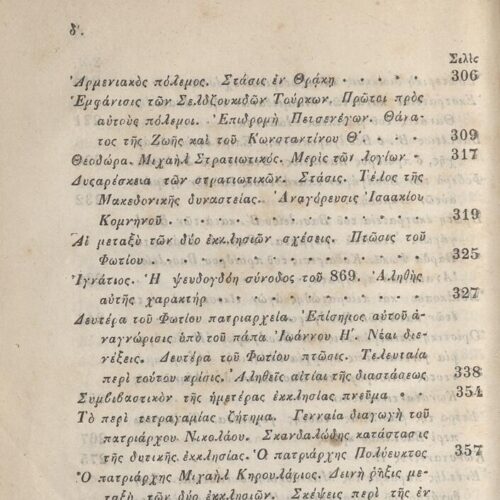 δ'.
Σελὶς
Ἀρμενιακὸς πόλεμος. Στάσις ἐν Θράκῃ · · · · · 306
Ἐμφάνισις τῶν Σελδζουκιδῶν Τούρκων. Πρῶτοι πρὸς
αὐτοὺς πόλεμοι. Ἐπιδρομὴ Πετσενέγων. Θάνα-
τος τῆς Ζωῆς καὶ τοῦ Κωνσταντίνου Θ'. · · · 309
Θεοδώρα. Μιχαὴλ Στρατιωτικός. Μερὶς τῶν λογίων · 317
Δυσαρέσκεια τῶν στρατιωτικῶν. Στάσις. Τέλος τῆς
Μακεδονικῆς δυναστείας. Ἀναγόρευσις Ἰσαακίου
Κομνηνοῦ · · · · · · · · · · 319
Αἱ μεταξὺ τῶν δύο ἐκκλησιῶν σχέσεις. Πτῶσις τοῦ
Φωτίου · · · · · · · · · · · 325
Ἰγνάτιος. Ἡ ψευδογδόη σύνοδος τοῦ 869. Ἀληθὴς
αὐτῆς χαρακτήρ · · · · · · · · · 327
Δευτέρα τοῦ Φωτίου πατριαρχεία. Ἐπίσημος αὐτοῦ ἀ-
ναγνώρισις ὑπὸ τοῦ πάπα Ἰωάννου Η'. Νέαι διε-
νέξεις. Δευτέρα τοῦ Φωτίου πτῶσις. Τελευταία
περὶ τούτου κρίσις. Ἀληθεῖς αἰτίαι τῆς διαστάσεως 338
Συμβιβαστικὸν τῆς ἡμετέρας ἐκκλησίας πνεῦμα · · 354
Τὸ περὶ τετραγαμίας ζήτημα. Γενναία διαγωγὴ τοῦ
πατριάρχου Νικολάου. Σκανδαλώδης κατάστασις
τῆς δυτικῆς ἐκκλησίας. Ὁ πατριάρχης Πολύευκτος 357
Ὁ πατριάρχης Μιχαὴλ Κηρουλάριος. Δεινὴ ῥῆξις με-
ταξὺ τῶν δύο ἐκκλησιῶν. Σκέψεις περὶ τῆς ἐν